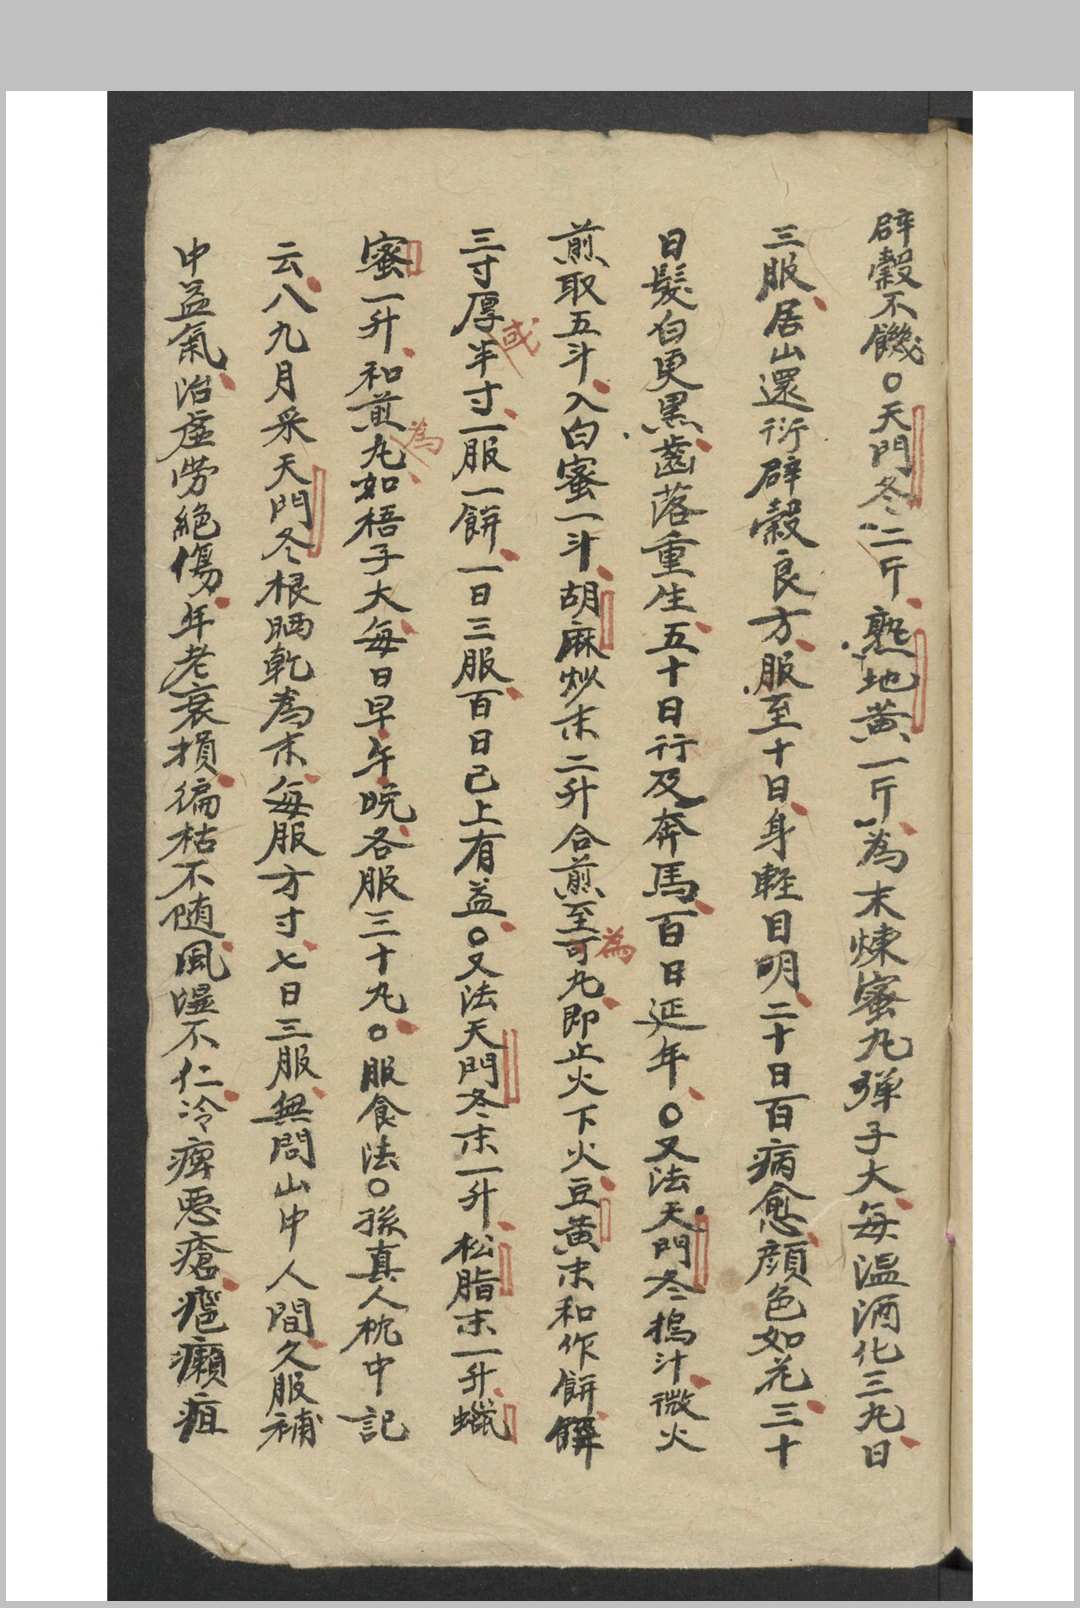 辟穀不饑○天門冬二斤熟地黃一斤為末煉蜜丸彈子大每温酒化三丸日
三服居山還行辟穀良方服至十日身輕目明二十日百病愈顔色如花三十
日髮白更黑齒落重生五十日行及奔馬百日延年○又法天門冬搗汁微火
煎取五斗入白蜜一斗胡麻炒末二升合煎至可丸即止火下火豆黃末和作餅
為
三寸厚半寸一服一餅一日三服百日已上有益○又法天門冬末一升松脂末一升蠟
或
蜜一升和煎丸如梧子大每日早午晚各服三十丸○服食法○孫真人枕中記
為
云八九月采天門冬根晒乾為末每服方寸七日三服無問山中人間久服補
中益氣治虛勞絕傷年老衰損偏枯不随風湿不仁冷痺惡瘡癰癩疽